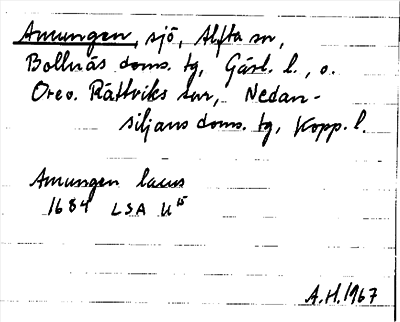 Amungen, sjö, Alfta sn,
Bollnäs doms. tg, Gävl. l., o.
Ore o. Rättviks snr, Nedan-
siljans doms. tg, Kopp. l.
Amungen lacus
1684 LSA U 15
A.H. 1967